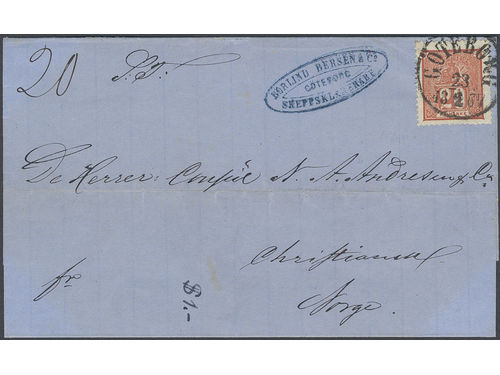 20
P. T.
BORLIND BERSEN & Co
GÖTEBORG
SKEPPSKLARERARE
GÖTEBORG
23
De Herrer: Consul N. A. Andresen & Co
Christianssand
Norge.
fr
$1.-